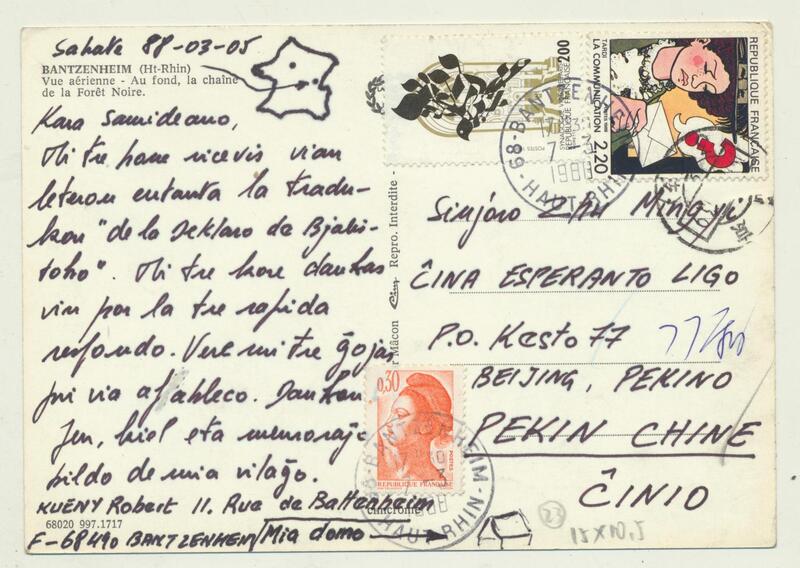 Sabate 88-03-05
BANTZENHEIM (Ht-Rhin)
Vue aérienne - Au fond, la chaîne
de la Forêt Noire.
Kara Samideano,
Mi tre bone ricevis vian
leteron entantan la tradu-
kon "de la Deklaro de Bjalis-
toko". Mi tre kore dankas
vin por la tre rapida
respondo. Vere mi tre ĝojas
pri via afableco. Dankon
Jen, kiel eta memoraĵo
bildo de mia vilaĝo.
KUENY Robert 11. Rue de Battenheim
68020 997.1717
F-68490 BANTZENHEIM Mia domo
Mâcon
Repro. Interdite -
cincromie
2,00
POSTES
RÉPUBLIQUE FRANÇAISE
TARDI
LA COMMUNICATION
2,20
REPUBLIQUE FRANÇAISE
68-BANTZENHEIM
7-3
1988
HAUT-RHIN
Sinjoro Zhu Mingyi
ĈINA ESPERANTO LIGO
P.O. Kesto 77
BEIJING, PEKINO
PEKIN CHINE
ĈINIO
0,30
POSTES
REPUBLIQUE FRANÇAISE
68-BANTZENHEIM
1988
HAUT-RHIN
23
15X10,5